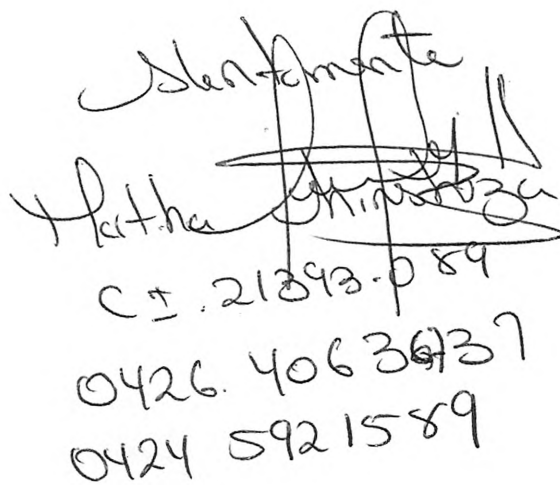 Atentamente
Martha Chirinoza
C I. 21393.089
0426. 4063637
0424 5921589